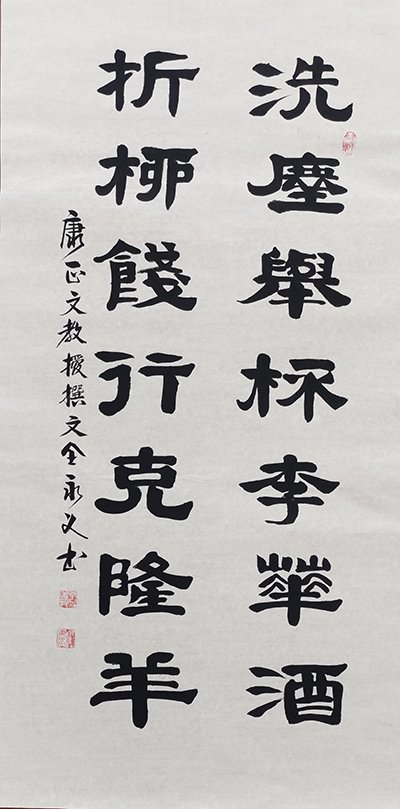 洗塵舉杯李華酒
折栁餞行克隆羊
康正文教授撰文全永义书